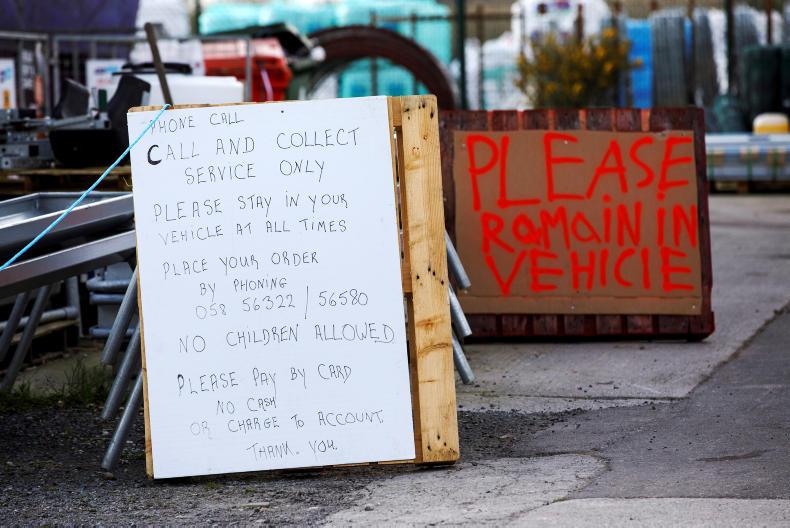 PHONE CALL
CALL AND COLLECT
SERVICE ONLY
PLEASE STAY IN YOUR
VEHICLE AT ALL TIMES
PLACE YOUR ORDER
BY PHONING
058 56322 / 56580
NO CHILDREN ALLOWED
PLEASE PAY BY CARD
NO CASH
OR CHARGE TO ACCOUNT.
THANK. YOU.
PLEASE
RamaiN IN
VEHICIE